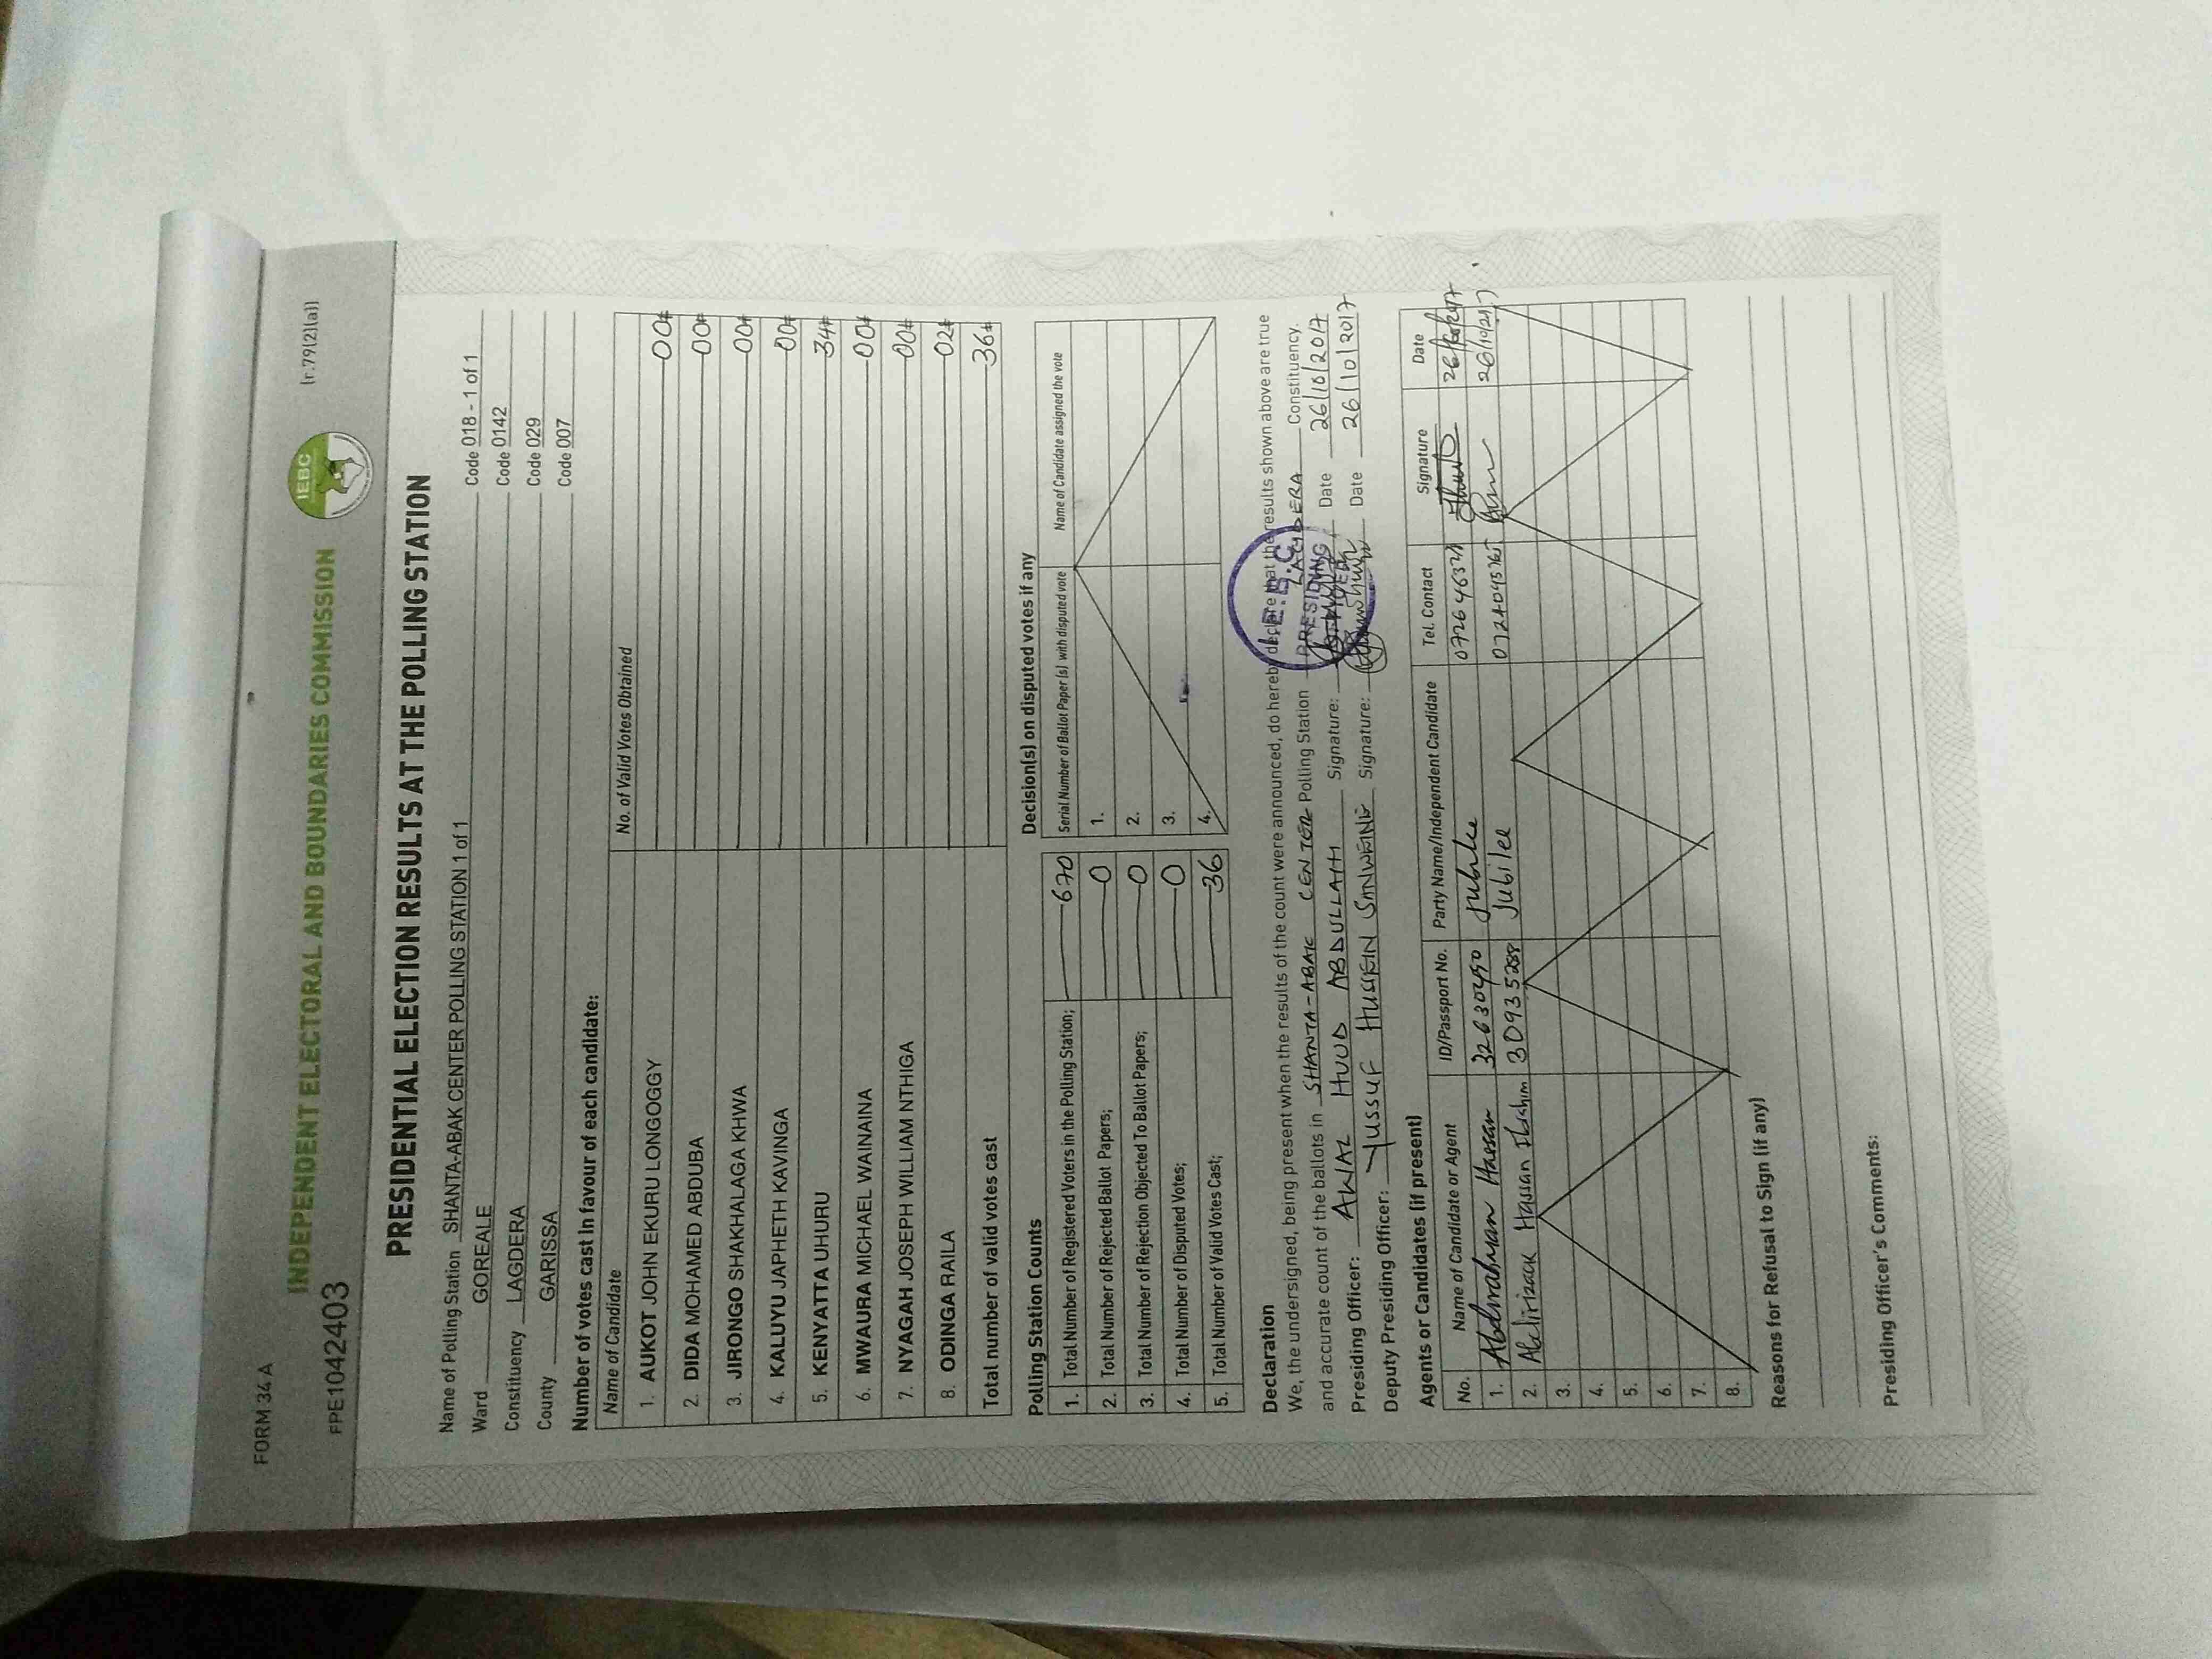 FORM 34 A
(r.79(2)(a))
INDEPENDENT ELECTORAL AND BOUNDARIES COMMISSION
IEBC
FPE1042403
PRESIDENTIAL ELECTION RESULTS AT THE POLLING STATION
Name of Polling Station SHANTA-ABAK CENTER POLLING STATION 1 of 1 Code 018 - 1 of 1
Ward GOREALE Code 0142
Constituency LAGDERA Code 029
County GARISSA Code 007
Number of votes cast in favour of each candidate:
Name of Candidate No. of Valid Votes Obtained
1. AUKOT JOHN EKURU LONGOGGY 00
2. DIDA MOHAMED ABDUBA 00
3. JIRONGO SHAKHALAGA KHWA 00
4. KALUYU JAPHETH KAVINGA 00
5. KENYATTA UHURU 34
6. MWAURA MICHAEL WAINAINA 00
7. NYAGAH JOSEPH WILLIAM NTHIGA 00
8. ODINGA RAILA 02
Total number of valid votes cast 36
Polling Station Counts
1. Total Number of Registered Voters in the Polling Station; 670
2. Total Number of Rejected Ballot Papers; 0
3. Total Number of Rejection Objected To Ballot Papers; 0
4. Total Number of Disputed Votes; 0
5. Total Number of Valid Votes Cast; 36
Decision(s) on disputed votes if any
Serial Number of Ballot Paper (s) with disputed vote Name of Candidate assigned the vote
1.
2.
3.
4.
Declaration
We, the undersigned, being present when the results of the count were announced, do hereby declare that the results shown above are true
and accurate count of the ballots in SHANTA-ABAK CENTER Polling Station LAGDERA Constituency.
Presiding Officer: AWAL HUUD ABDULLAHI Signature: Date 26/10/2017
Deputy Presiding Officer: YUSSUF HUSSEIN Signature: Date 26/10/2017
I.E.B.C
PRESIDING
OFFICER
Agents or Candidates (if present)
No. Name of Candidate or Agent ID/Passport No. Party Name/Independent Candidate Tel. Contact Signature Date
1. Abdirahman Hassan 32630490 Jubilee
2. Abdirizack Hassan Ibrahim 30935288 Jubilee
3.
4.
5.
6.
7.
8.
Reasons for Refusal to Sign (if any)
Presiding Officer's Comments: